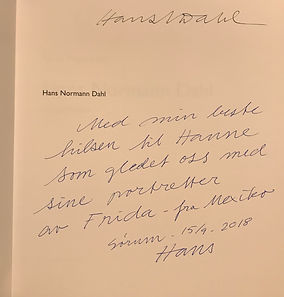 Hans N Dahl
Hans Normann Dahl
Med min beste
hilsen til Hanne
som gledet oss med
sine portretter
av Frida - fra Mexiko
Sørum - 15/9 - 2018
Hans